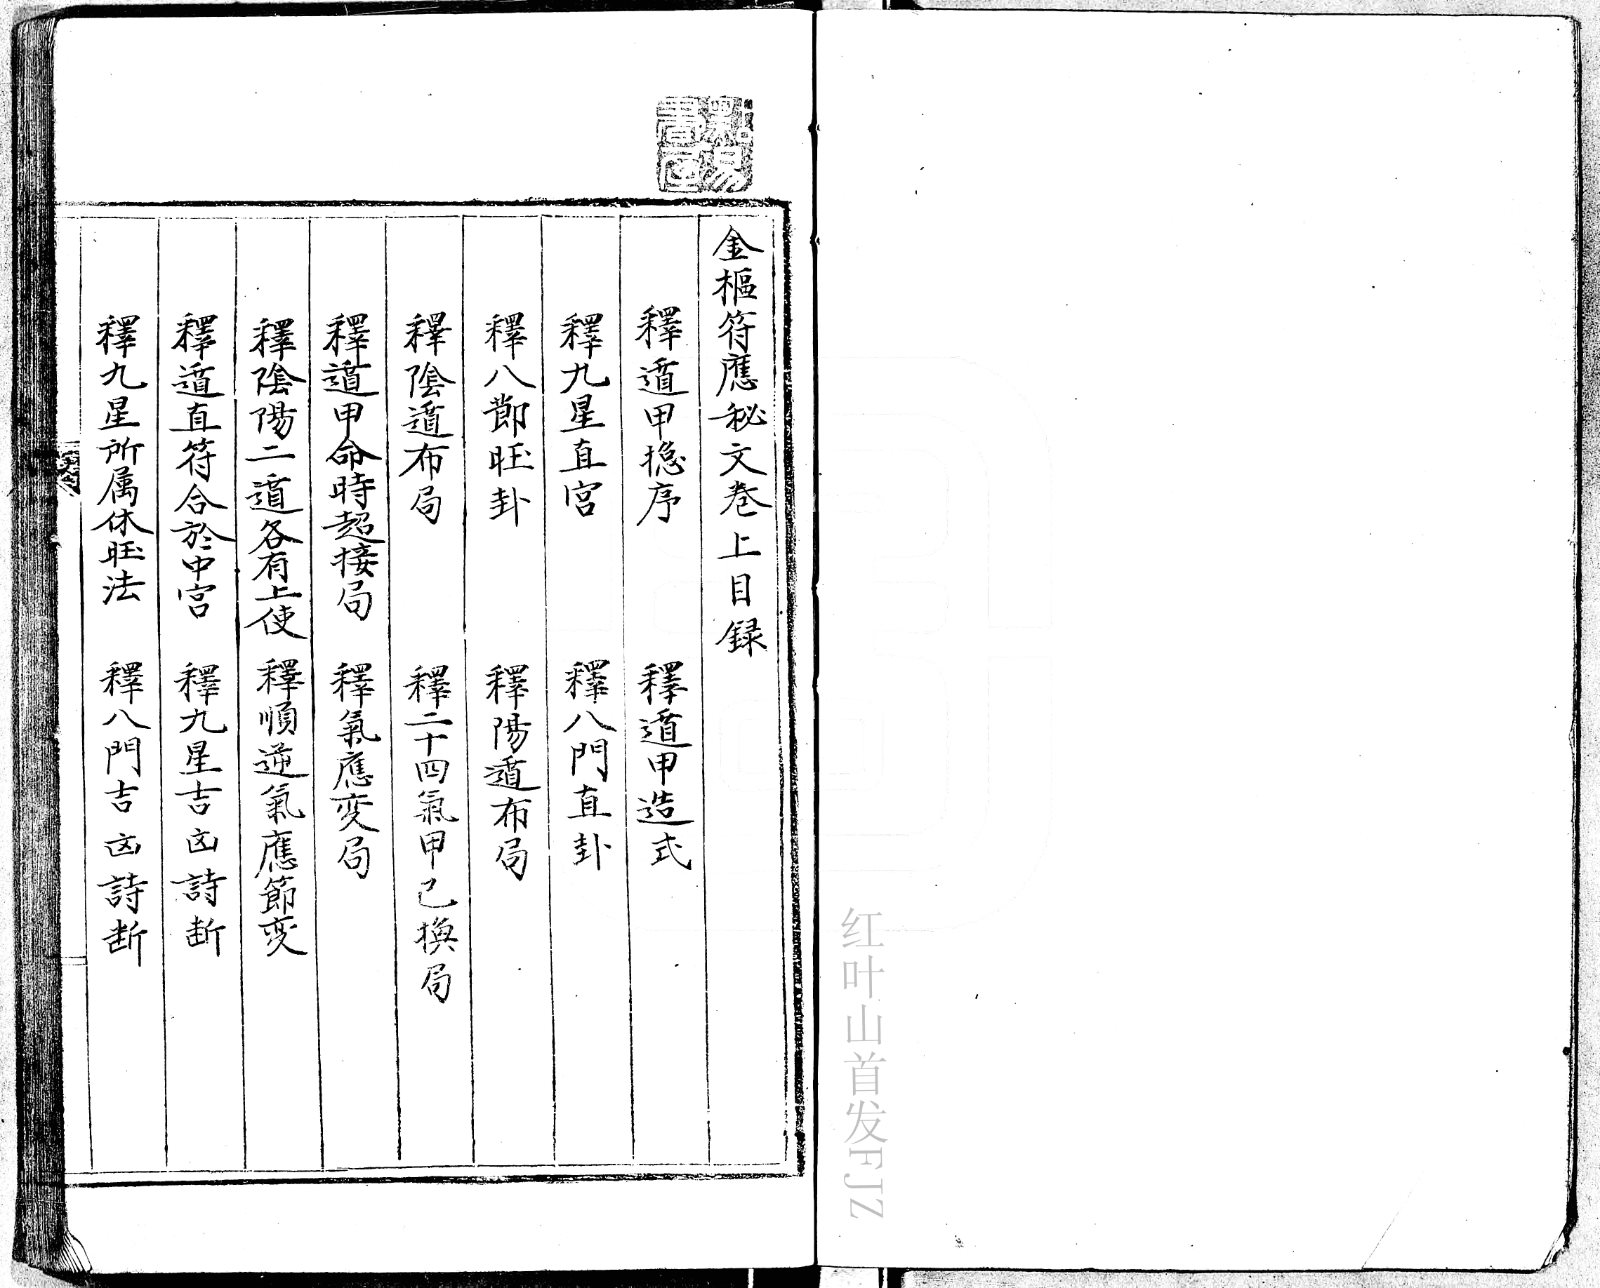 金樞符應秘文巻上目録
釋遁甲捴序
釋遁甲造式
釋九星直宫
釋八門直卦
釋八節旺卦
釋陽遁布局
釋陰遁布局
釋二十四氣甲己換局
釋遁甲命時超接局
釋氣應変局
釋陰陽二遁各有上使
釋順逆氣應節变
釋遁直符合於中宫
釋九星吉凶詩断
釋九星所属休旺法
釋八門吉凶詩断
红叶山首发FJZ